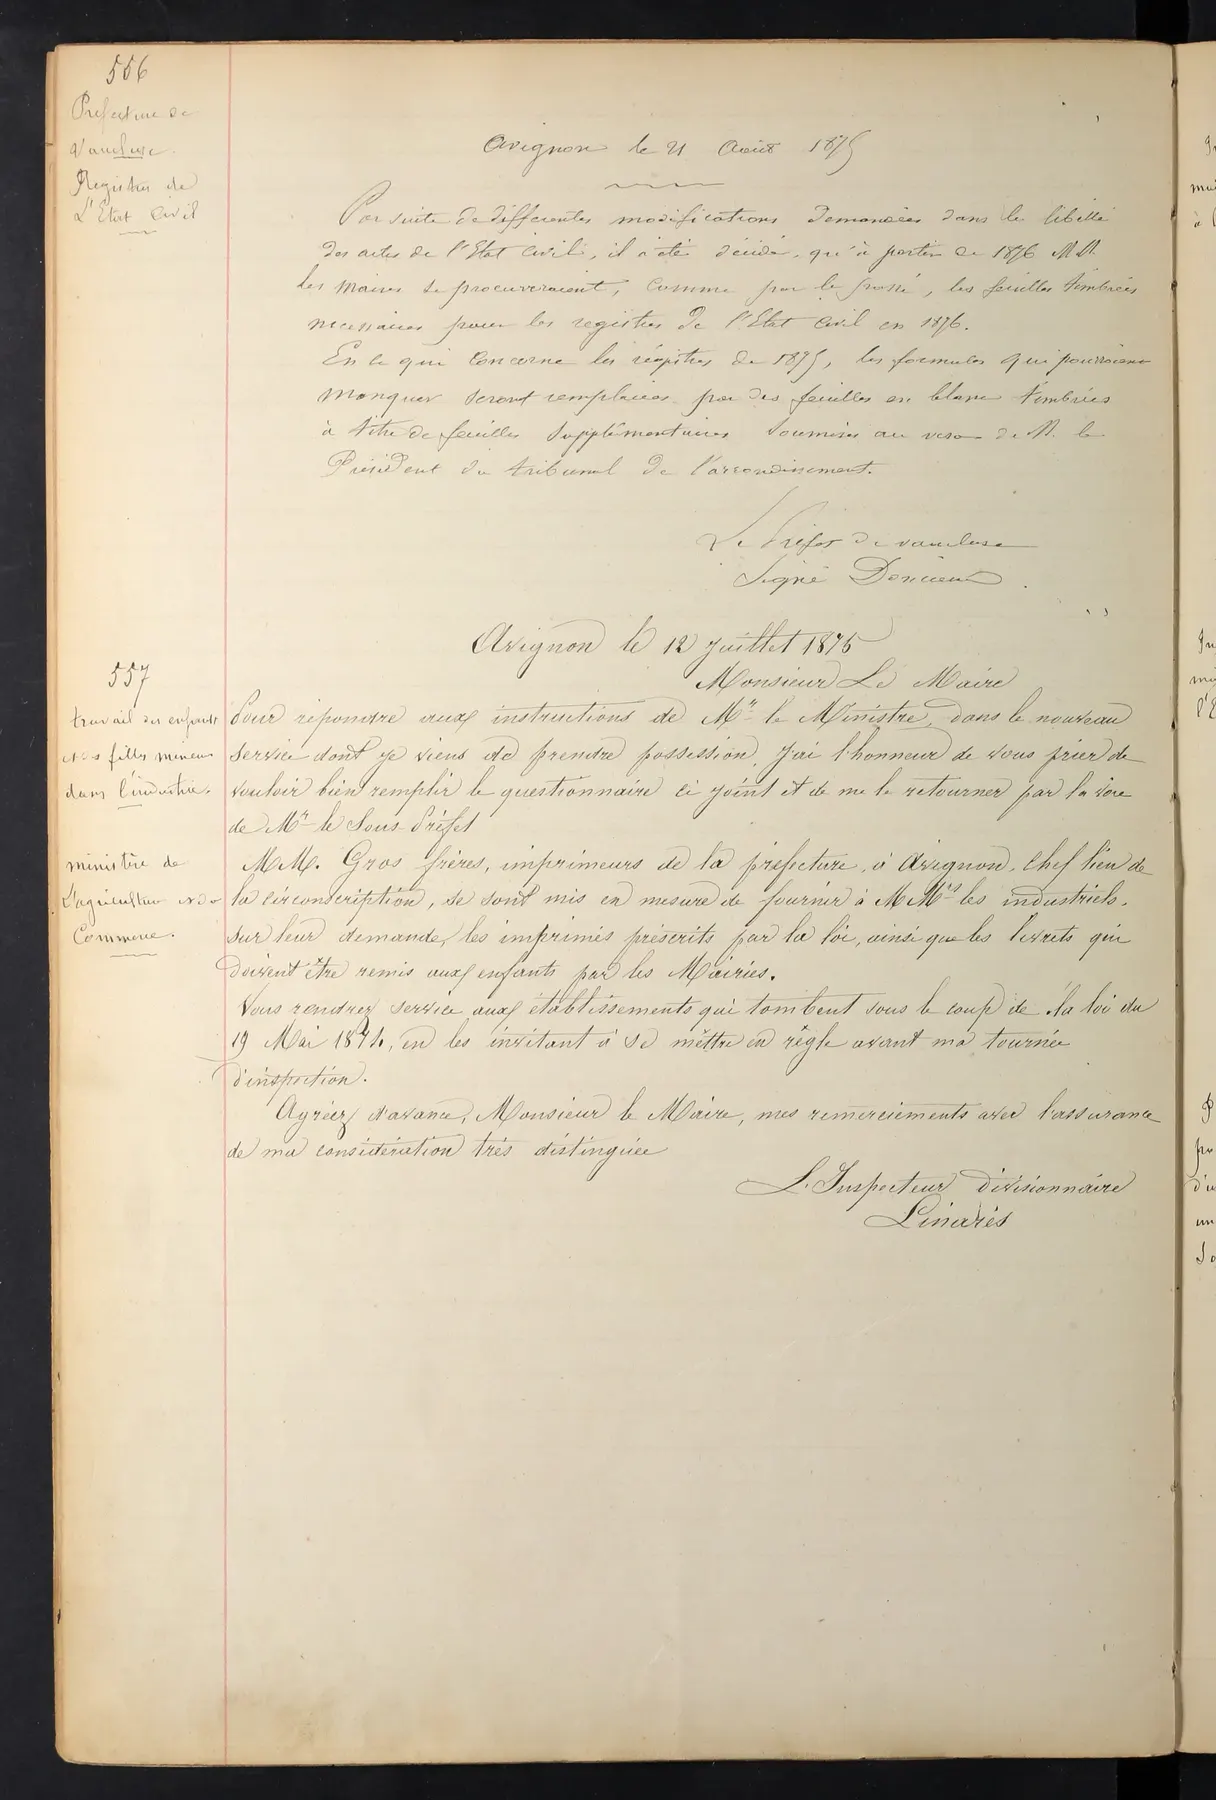 556
Prefecture de
Vaucluse.
Registres de
L'Etat Civil
Avignon le 21 Août 1875
Par suite de differentes modifications demandées dans le libellé
des actes de l'Etat Civil, il a été décidé, qu'à partir de 1876 M.M.
les Maires se procureraient, comme par le passé, les feuilles timbrées
necessaires pour les registres de l'Etat Civil en 1876.
En ce qui concerne les régistres de 1875, les formules qui pourraient
manquer seront remplacées par des feuilles en blanc timbrées
à titre de feuilles supplémentaires soumises au visa de M. le
Président du tribunal de l'arrondissement.
Le Préfet de Vaucluse
Signé Doncieux
557
travail des enfants
et des filles mineures
dans l'industrie.
ministère de
L'agriculture et du
Commerce.
Avignon le 12 Juillet 1875
Monsieur Le Maire
Pour répondre aux instructions de Mr le Ministre, dans le nouveau
service dont je viens de prendre possession, j'ai l'honneur de vous prier de
vouloir bien remplir le questionnaire ci joint et de me le retourner par la voie
de Mr le Sous-Préfet
M.M. Gros frères, imprimeurs de la préfecture, à Avignon, chef lieu de
la circonscription, se sont mis en mesure de fournir à MMrs les industriels,
sur leur demande, les imprimés préscrits par la loi, ainsi que les livrets qui
doivent être remis aux enfants par les Mairies.
Vous rendrez service aux établissements qui tombent sous le coup de la loi du
19 Mai 1874, en les invitant à se mettre en règle avant ma tournée
d'inspection.
Agréez d'avance, Monsieur le Maire, mes remerciements avec l'assurance
de ma considération très distinguée
L'Inspecteur divisionnaire
Linarès